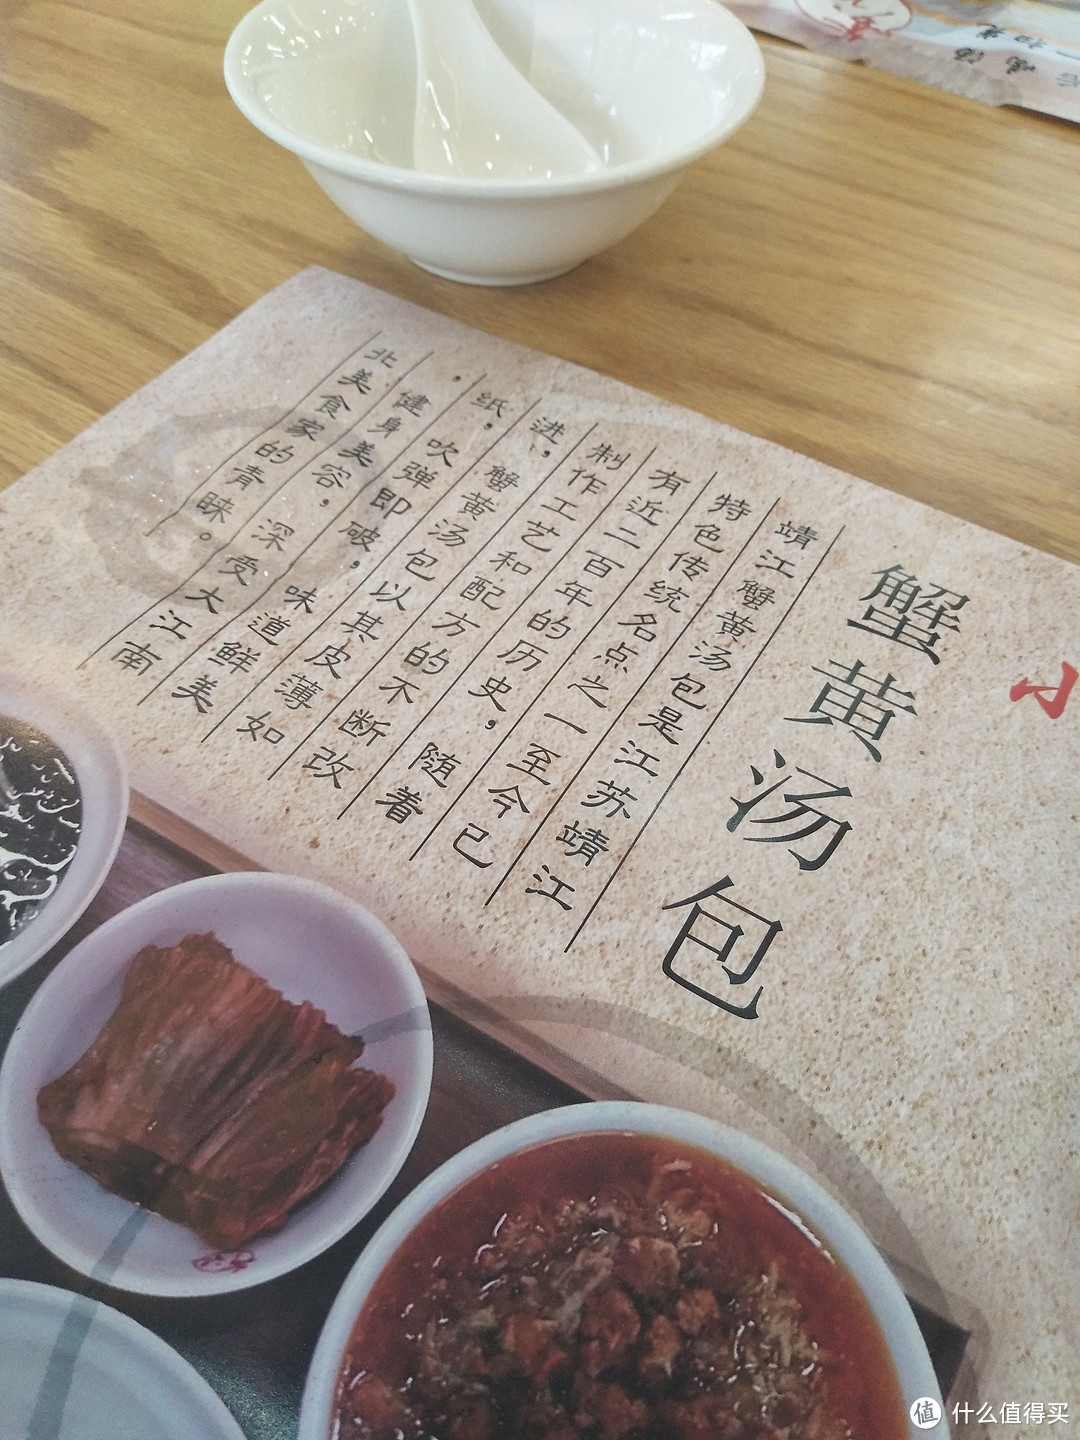 蟹黄汤包
靖江蟹黄汤包是江苏靖江
特色传统名点之一至今已
有近二百年的历史，随着
制作工艺和配方的不断改
进，蟹黄汤包以其皮薄如
纸，吹弹即破，味道鲜美
，健身美容，深受大江南
北美食家的青睐。
值 什么值得买